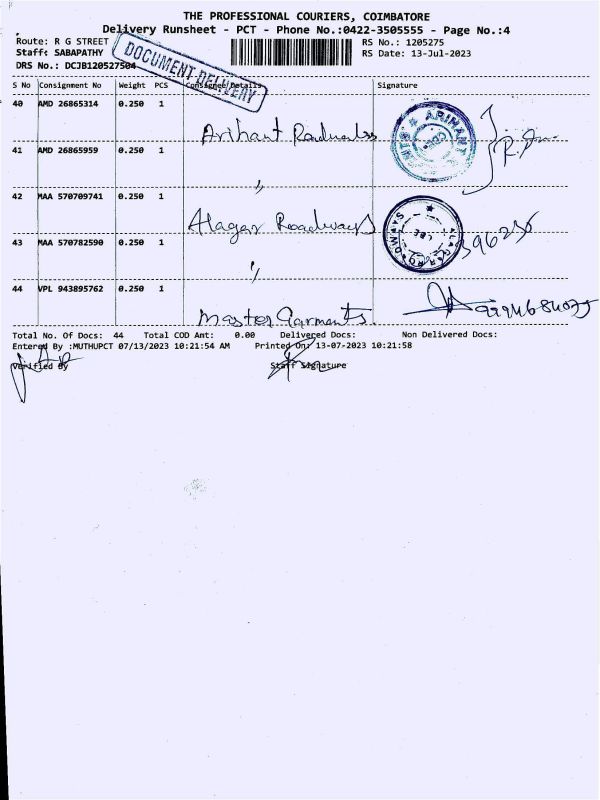 THE PROFESSIONAL COURIERS, COIMBATORE
Delivery Runsheet - PCT - Phone No.:0422-3505555 - Page No.:4
Route: R G STREET RS No.: 1205275
Staff: SABAPATHY RS Date: 13-Jul-2023
DRS No.: DCJB120527504
DOCUMENT DELIVERY
S No Consignment No Weight PCS Consignee Details Signature
40 AMD 26865314 0.250 1
Arihant Roadwaless
ARIHANT
41 AMD 26865959 0.250 1
"
42 MAA 570709741 0.250 1
Alagar Roadways
43 MAA 570782590 0.250 1
"
44 VPL 943895762 0.250 1
Master Garments.
Total No. Of Docs: 44 Total COD Amt: 0.00 Delivered Docs: Non Delivered Docs:
Entered By :MUTHUPCT 07/13/2023 10:21:54 AM Printed On: 13-07-2023 10:21:58
Verified By Staff Signature